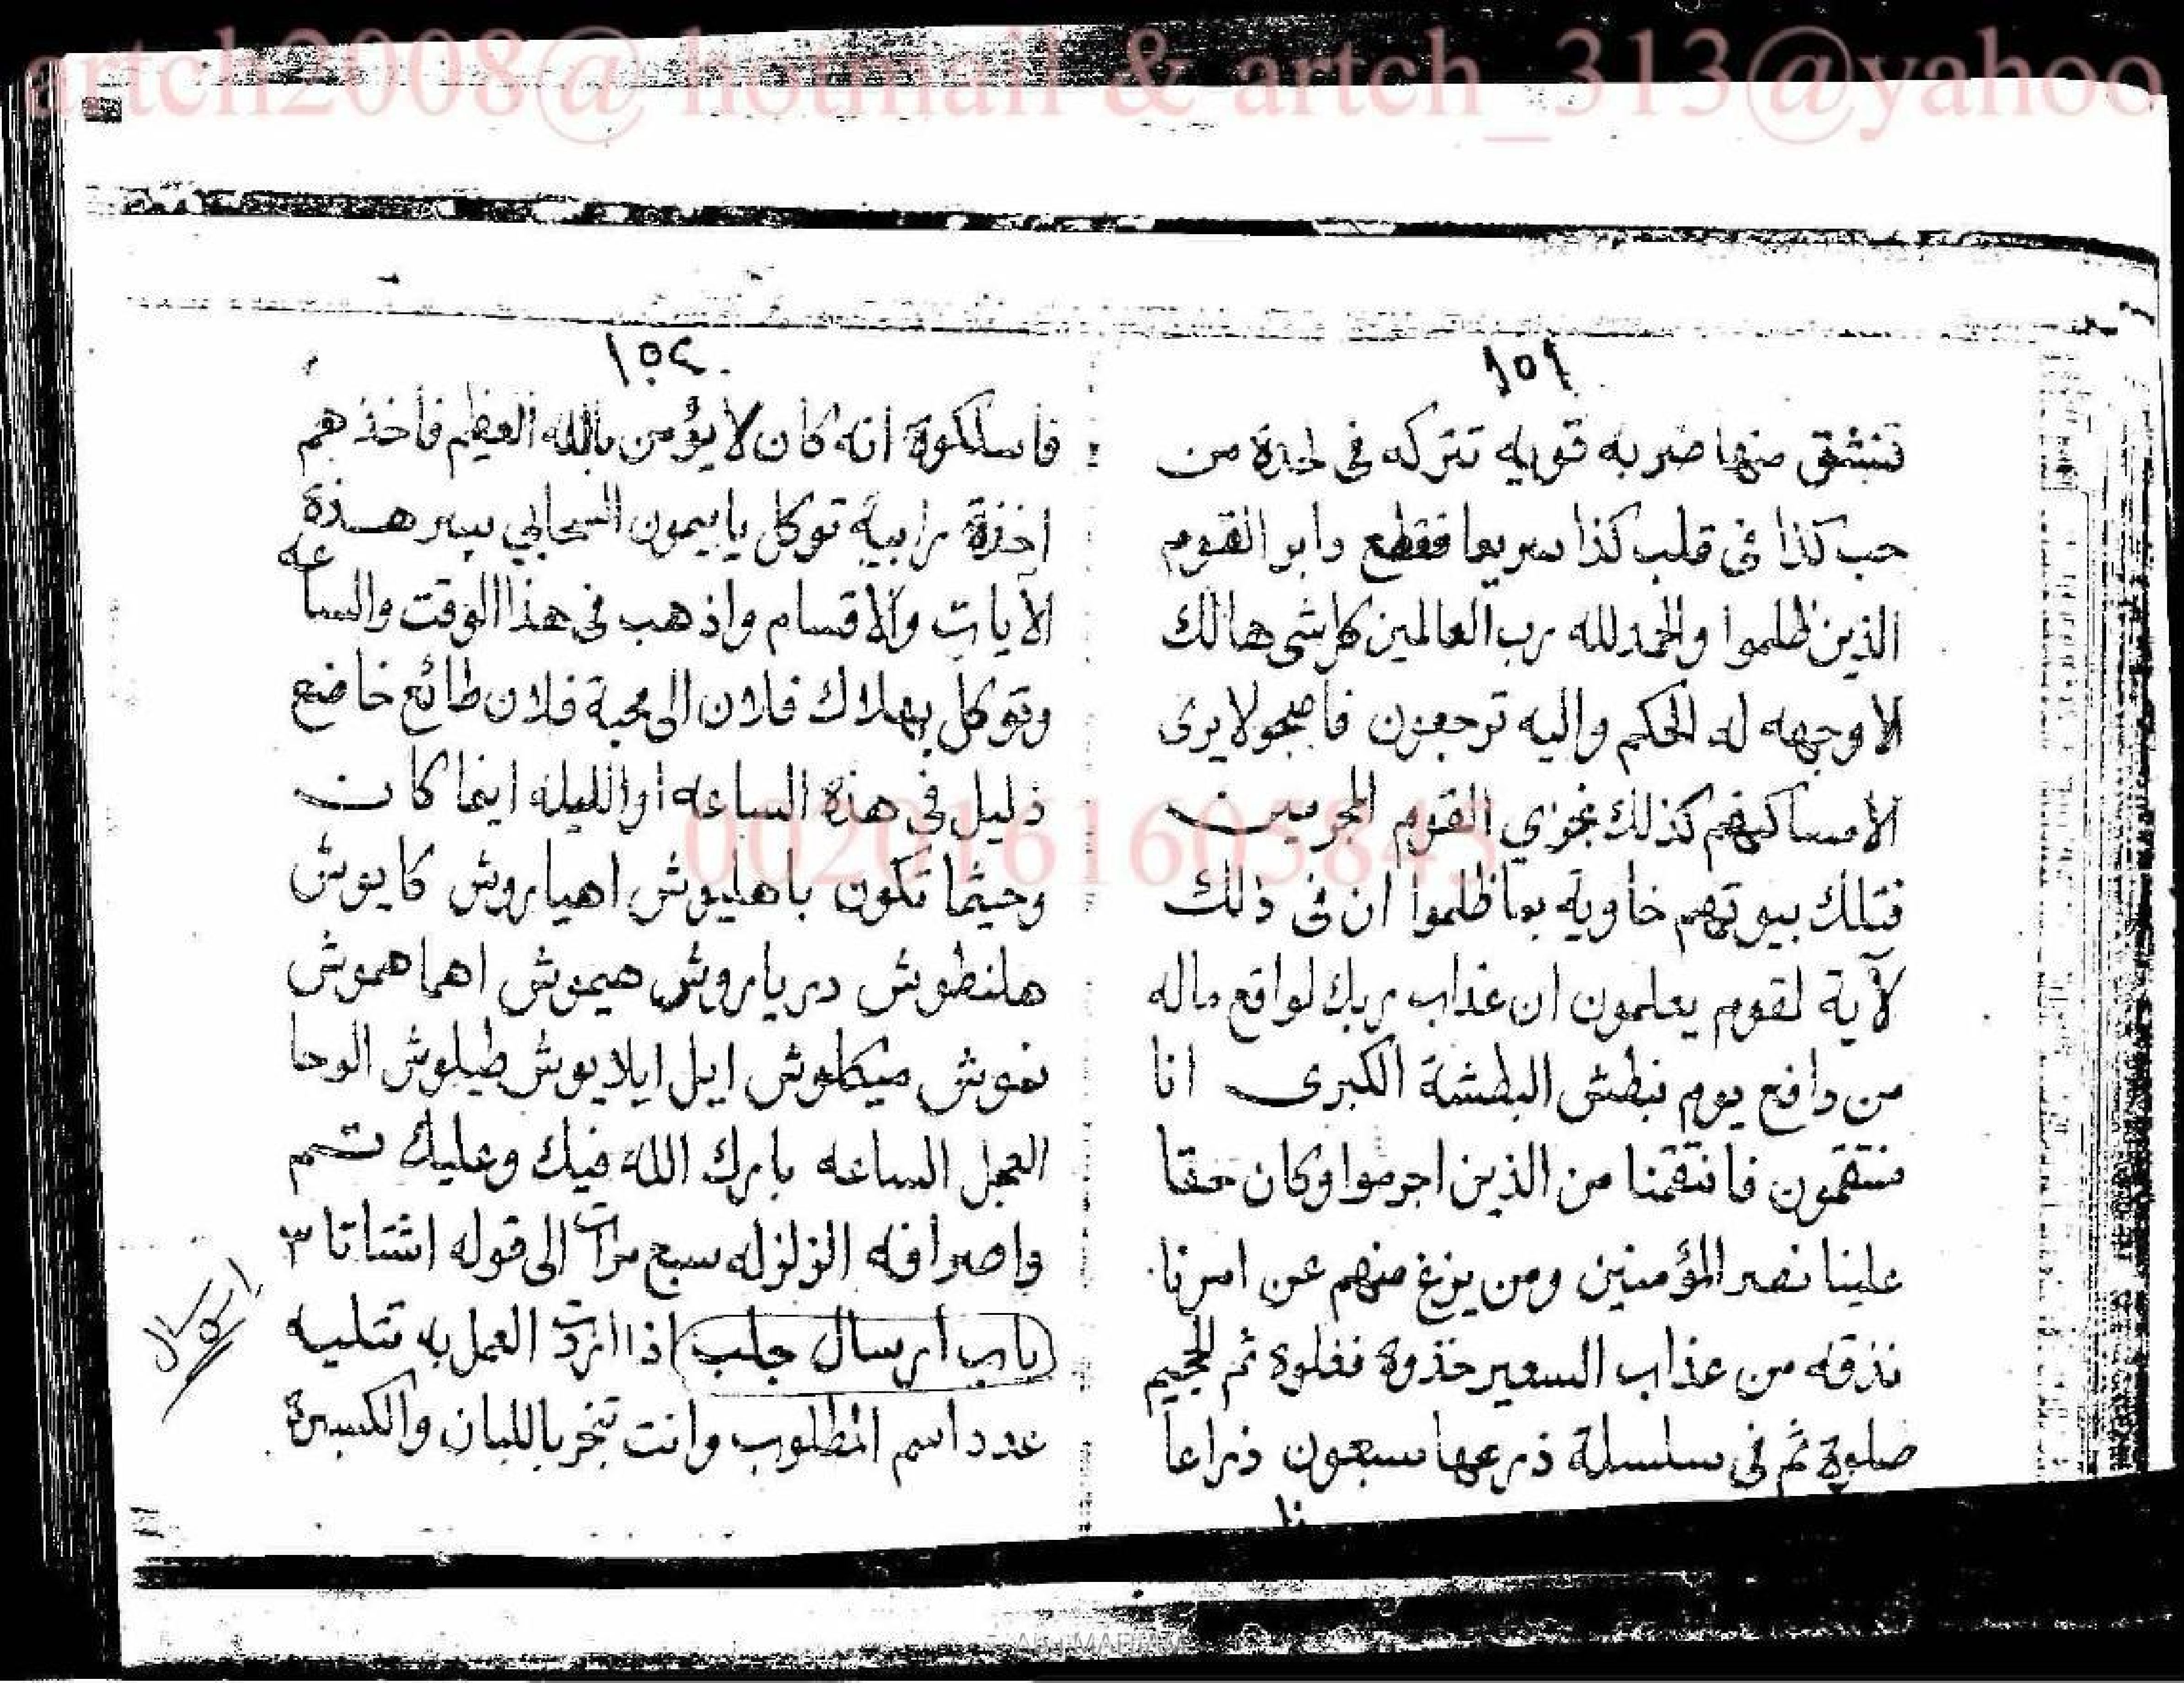 artch2008@ hotmail & artch_313@yahoo
١٥١
تنشق منها ضربه قويه تتركه فى لحدة من
حب كذا فى قلب كذا سريعا فقطع دابر القوم
الذين ظلموا والحمد لله رب العالمين كل شى هالك
الا وجهه له الحكم واليه ترجعون فاصبحو لا يرى
الا مساكنهم كذلك نجزي القوم المجرمين
فتلك بيوتهم خاوية بما ظلموا ان فى ذلك
لآية لقوم يعلمون ان عذاب ربك لواقع ماله
من دافع يوم نبطش البطشة الكبرى انا
منتقمون فانتقمنا من الذين اجرموا وكان حقا
علينا نصر المؤمنين ومن يزغ منهم عن امرنا
نذقه من عذاب السعير خذوة فغلوة ثم الجحيم
صلوة ثم فى سلسلة ذرعها سبعون ذراعا
١٥٢
فاسلكوة انه كان لا يؤمن بالله العظيم فاخذهم
اخذة رابية توكل يا ميمون السحابي بسر هذة
الآيات والاقسام واذهب فى هذا الوقت والساعه
وتوكل بهلاك فلان الى محبة فلان طائع خاضع
ذليل فى هذة الساعه او الليله اينما كان
وحيثما تكون باهليوش اهياروش كايوش
هلنطوش درياروش هيموش اهماهموش
نموش ميكلوش ايل ايلايوش طيلوش الوحا
العجل الساعه بارك الله فيك وعليك تمم
واصرافه الزلزله سبع مرات الى قوله اشتاتا ٣
باب ارسال جلب اذا اردت العمل به تتليه
عدد اسم المطلوب وانت تبخر باللبان والكسبرة
ارسال
0020161605845